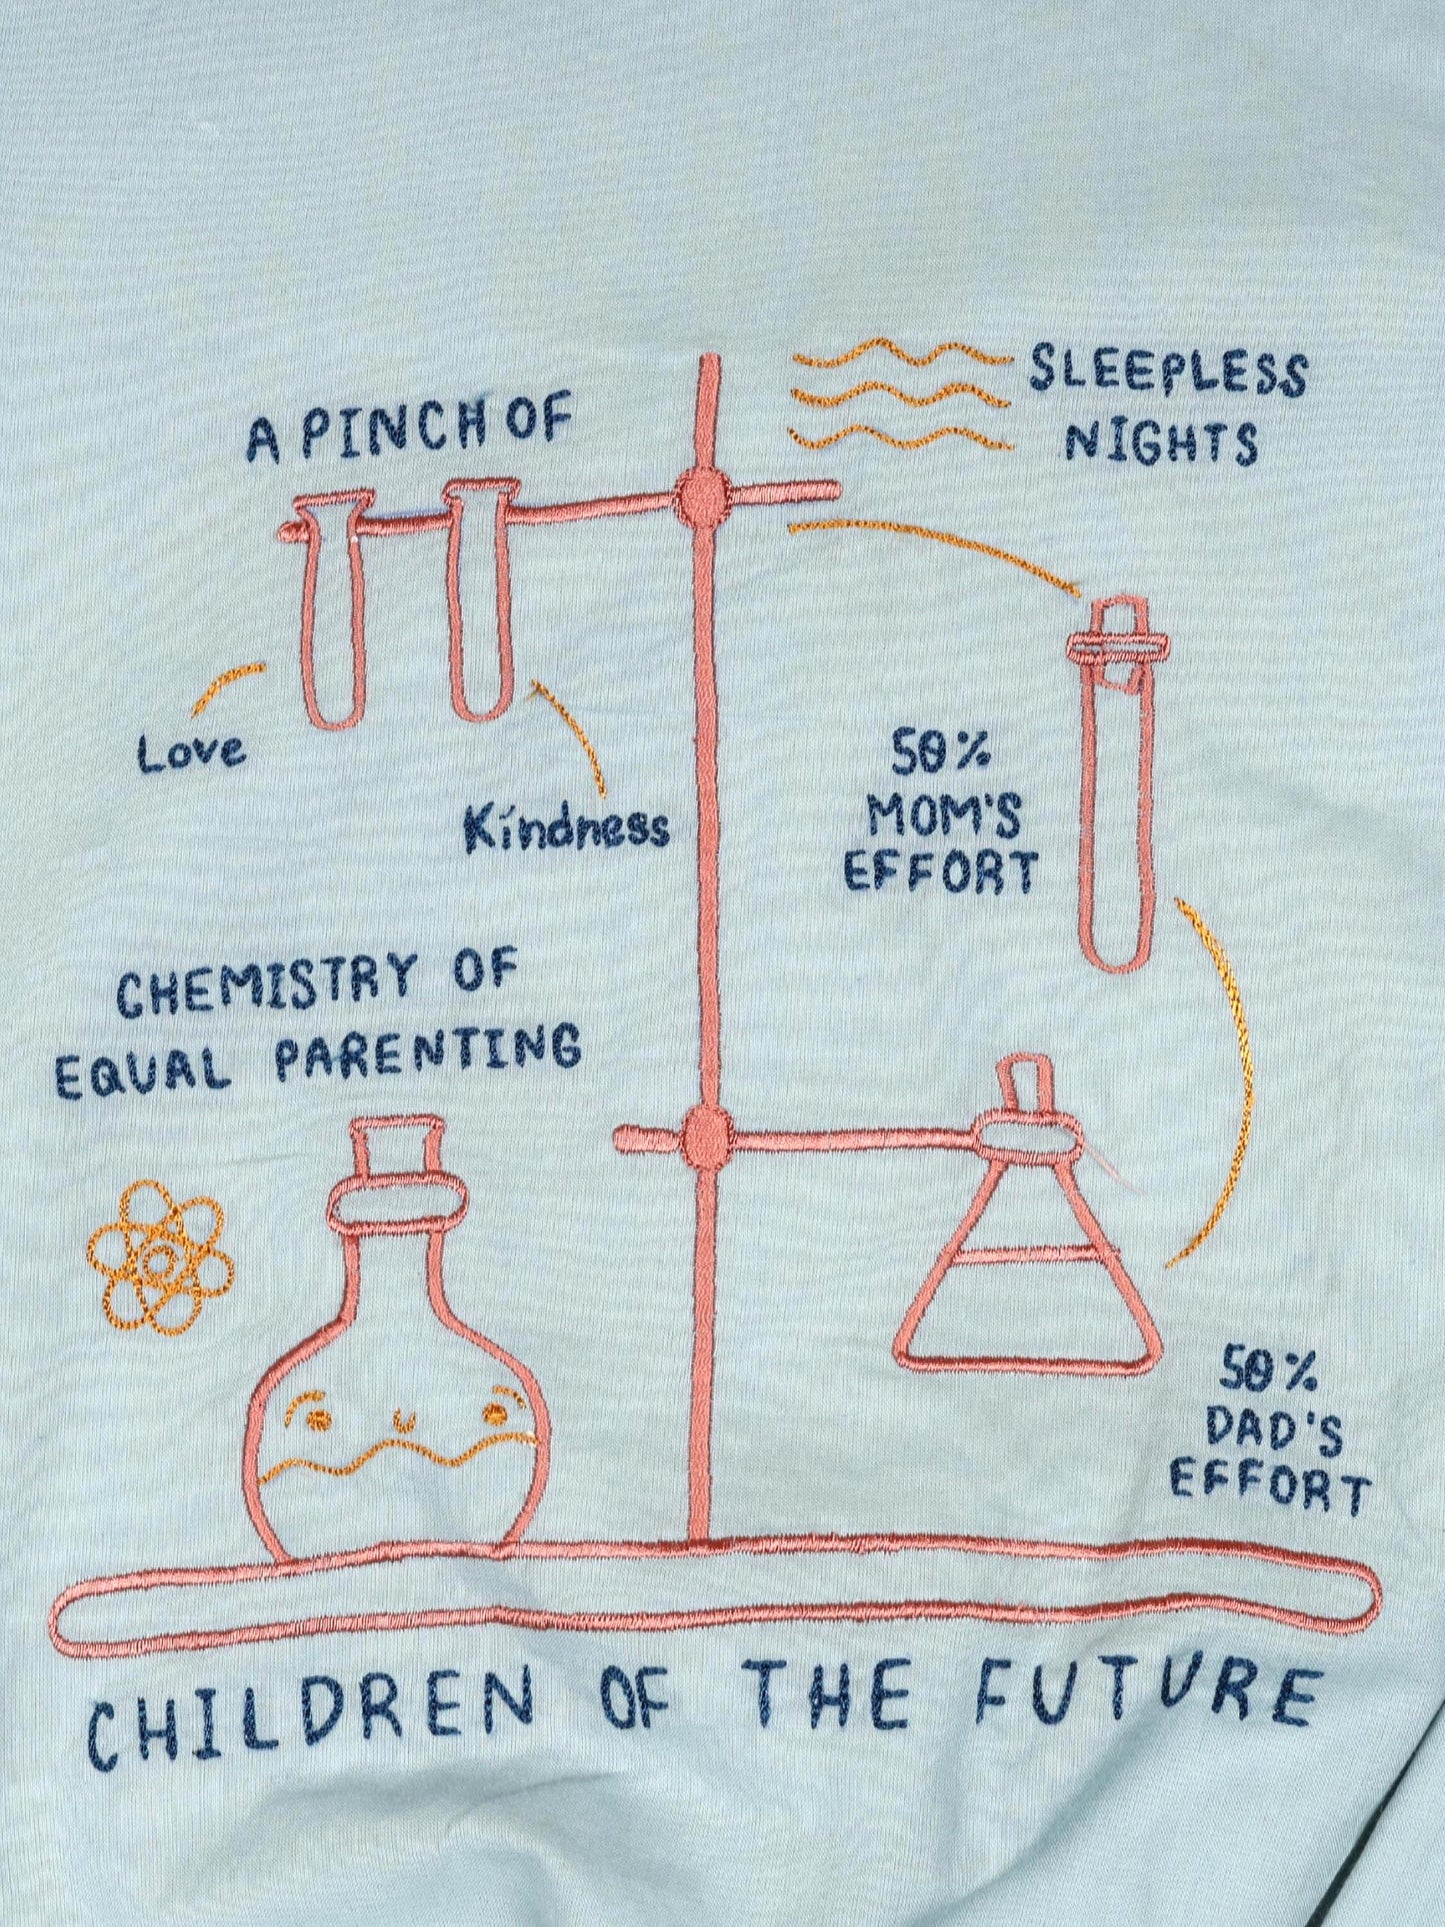 SLEEPLESS
NIGHTS
A PINCH OF
Love
Kindness
50%
MOM'S
EFFORT
CHEMISTRY OF
EQUAL PARENTING
50%
DAD'S
EFFORT
CHILDREN OF THE FUTURE